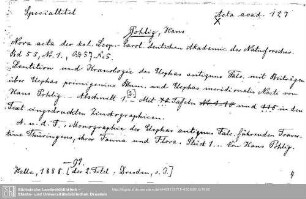 Specialtitel
Acta acad. 127
Pohlig, Hans
Nova acta der ksl. Leop.-Carol. deutschen Akademie der Naturforscher.
Bd 53, Nr. 1,
Dentition und Kranologie des Elephas antiquus Falc. mit Beiträgen
über Elephas primigenius Blum. und Elephas meridionalis Nesti von
Hans Pohlig. Abschnitt 1 Mit Tafeln und in den
Text eingedruckten Zinkographieen.
A. u. d. T.: Monographie der Elephas antiquus Falc. führenden Travertine
Thüringens, ihrer Fauna und Flora. Stück 1. Von Hans Pohlig.
Halle, 1888 [des 2. Titel: Dresden, o. J.]